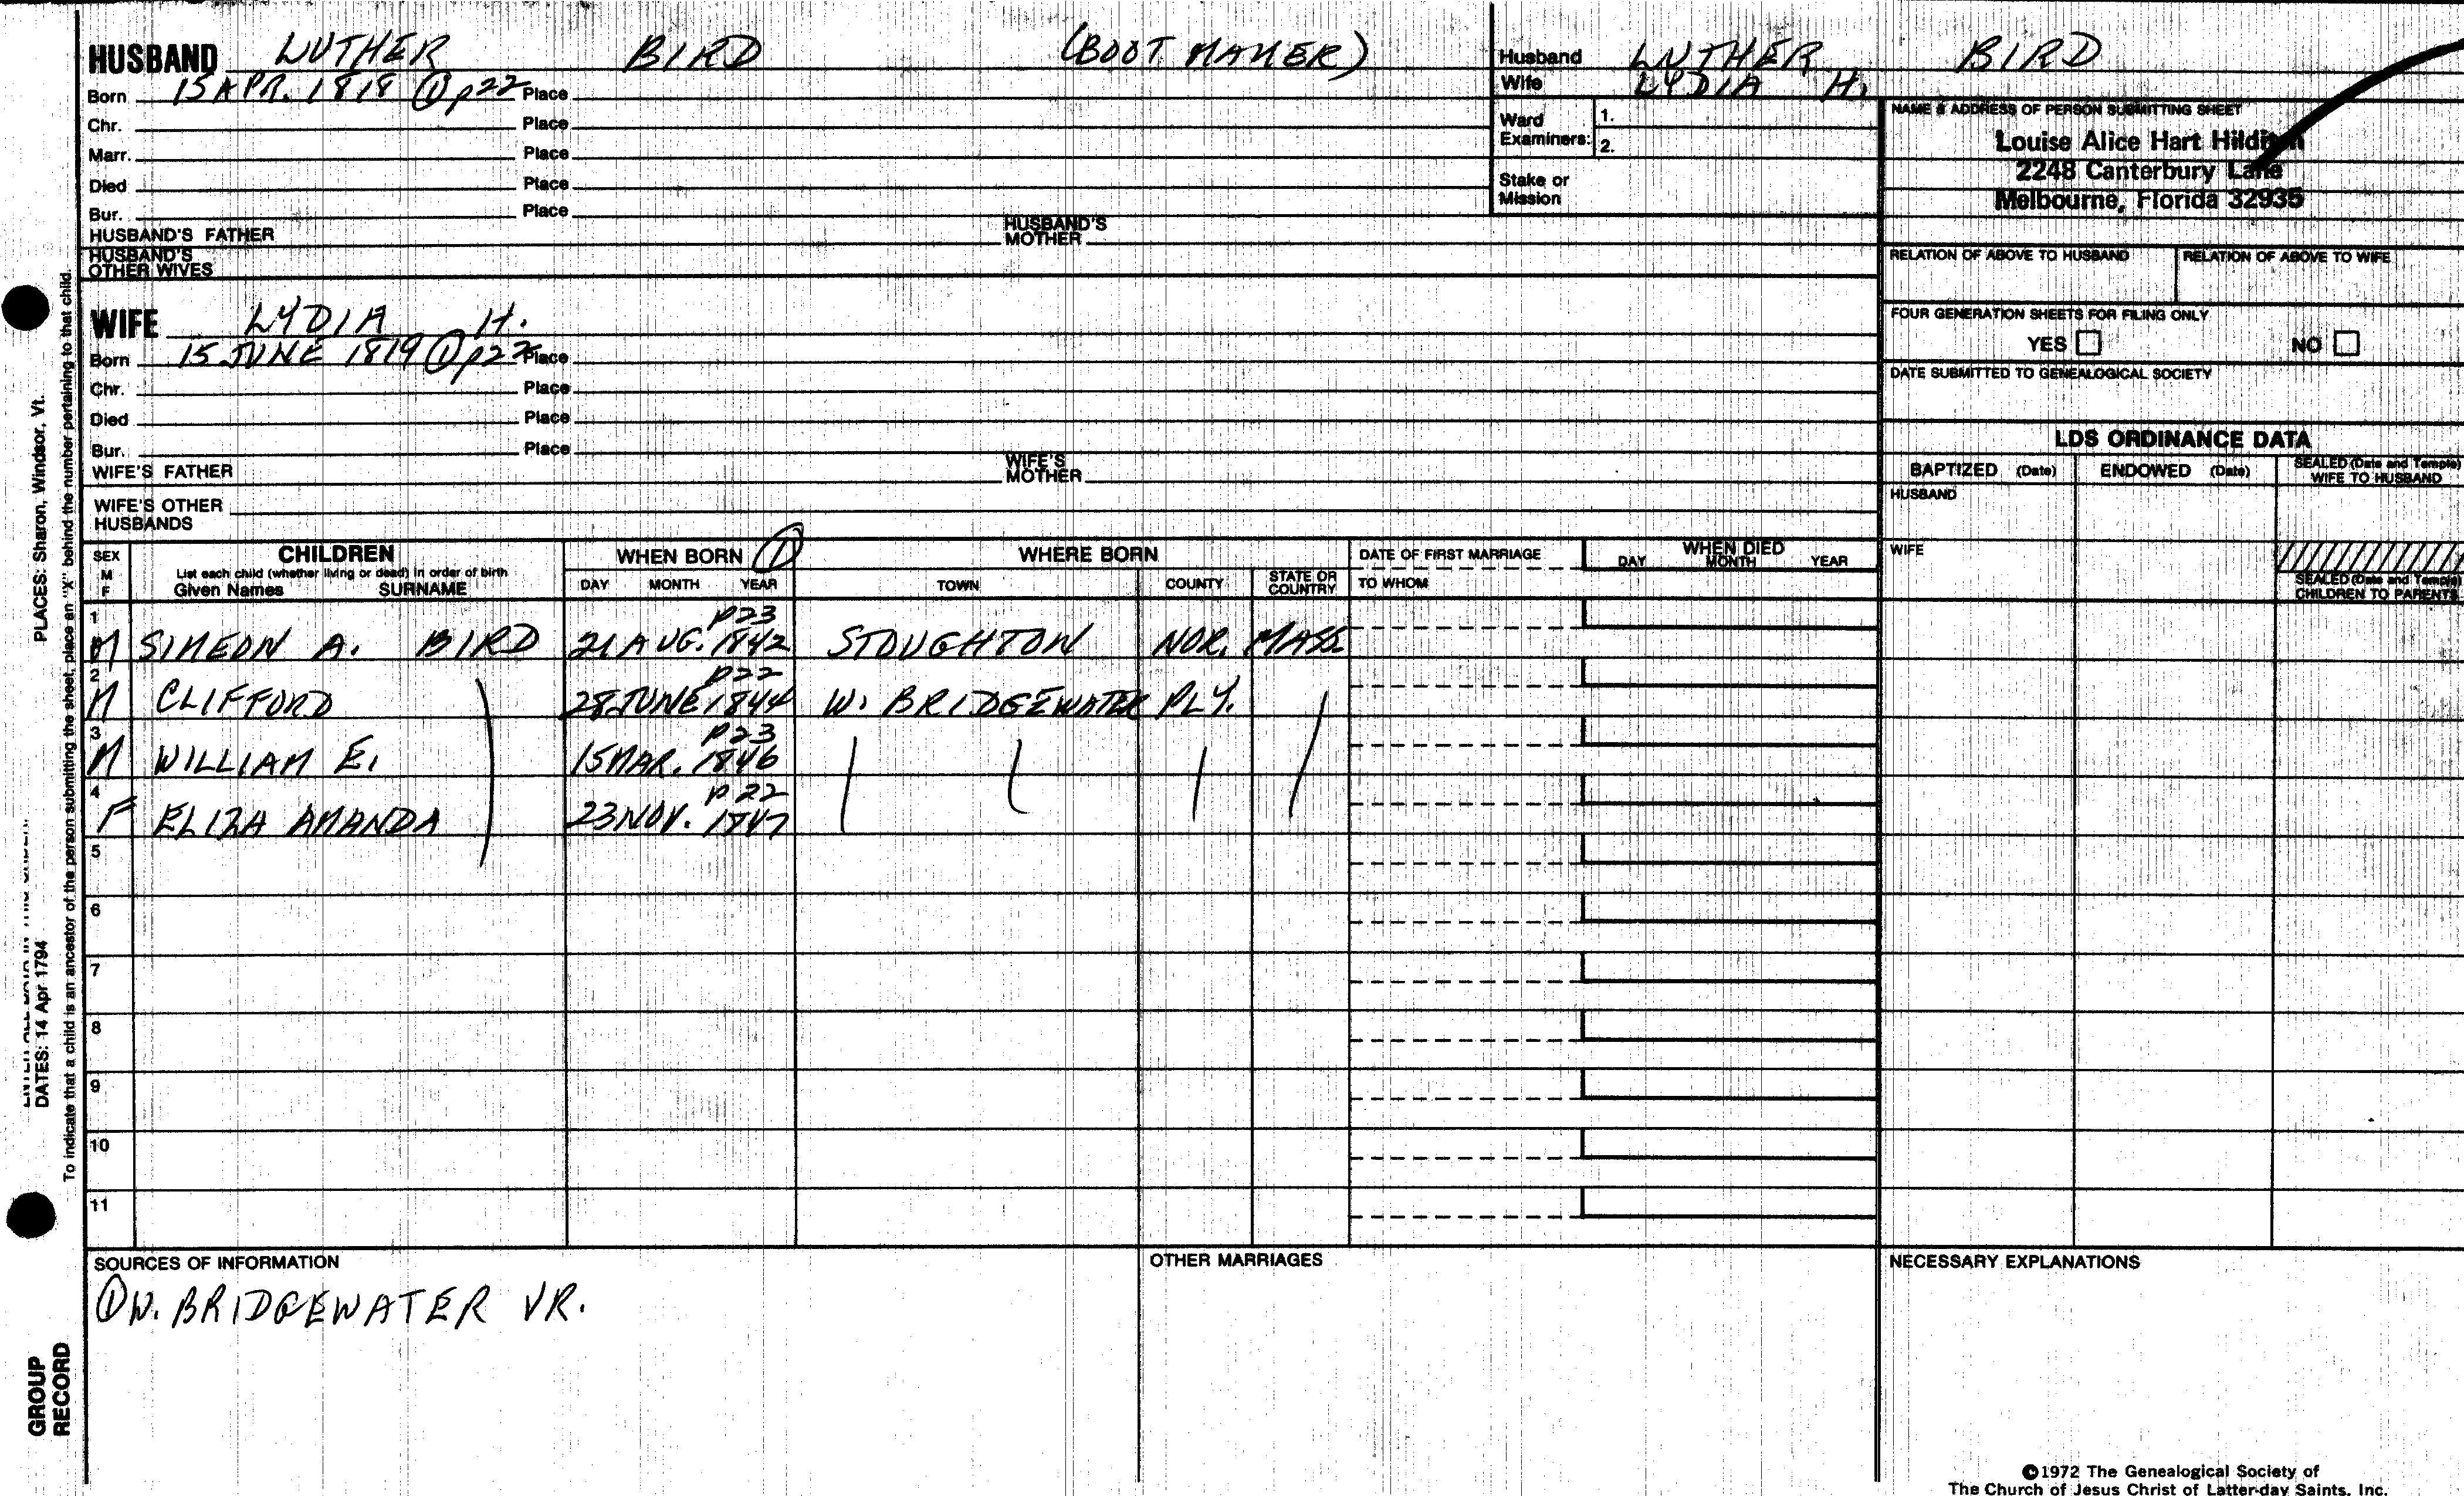 HUSBAND LUTHER BIRD (BOOT MAKER)
Born 15 APR. 1818 ① p22 Place
Chr. Place
Marr. Place
Died Place
Bur. Place
HUSBAND'S FATHER HUSBAND'S MOTHER
HUSBAND'S OTHER WIVES
Husband LUTHER BIRD
Wife LYDIA H.
Ward Examiners: 1.
2.
Stake or Mission
NAME & ADDRESS OF PERSON SUBMITTING SHEET
Louise Alice Hart
2248 Canterbury Lane
Melbourne, Florida 32935
RELATION OF ABOVE TO HUSBAND RELATION OF ABOVE TO WIFE
FOUR GENERATION SHEETS FOR FILING ONLY
YES NO
DATE SUBMITTED TO GENEALOGICAL SOCIETY
WIFE LYDIA H.
Born 15 JUNE 1819 ① p22 Place
Chr. Place
Died Place
Bur. Place
WIFE'S FATHER WIFE'S MOTHER
WIFE'S OTHER HUSBANDS
LDS ORDINANCE DATA
BAPTIZED (Date) ENDOWED (Date) SEALED (Date and Temple) WIFE TO HUSBAND
HUSBAND
WIFE
SEALED (Date and Temple) CHILDREN TO PARENTS
SEX M F
CHILDREN
List each child (whether living or dead) in order of birth
Given Names SURNAME
WHEN BORN ①
DAY MONTH YEAR
WHERE BORN
TOWN COUNTY STATE OR COUNTRY
DATE OF FIRST MARRIAGE
TO WHOM
WHEN DIED
DAY MONTH YEAR
1 p23
M SIMEON A. BIRD 21 AUG. 1842 STOUGHTON NOR. MASS.
2 p22
M CLIFFORD 28 JUNE 1844 W. BRIDGEWATER PLY.
3 p23
M WILLIAM E. 15 MAR. 1846
4 p22
F ELIZA AMANDA 23 NOV. 1847
5
6
7
8
9
10
11
SOURCES OF INFORMATION
① W. BRIDGEWATER VR.
OTHER MARRIAGES
NECESSARY EXPLANATIONS
©1972 The Genealogical Society of
The Church of Jesus Christ of Latter-day Saints, Inc.
DATES: 14 Apr 1794
PLACES: Sharon, Windsor, Vt.
To indicate that a child is an ancestor of the person submitting the sheet, place an "X" behind the number pertaining to that child.
GROUP
RECORD